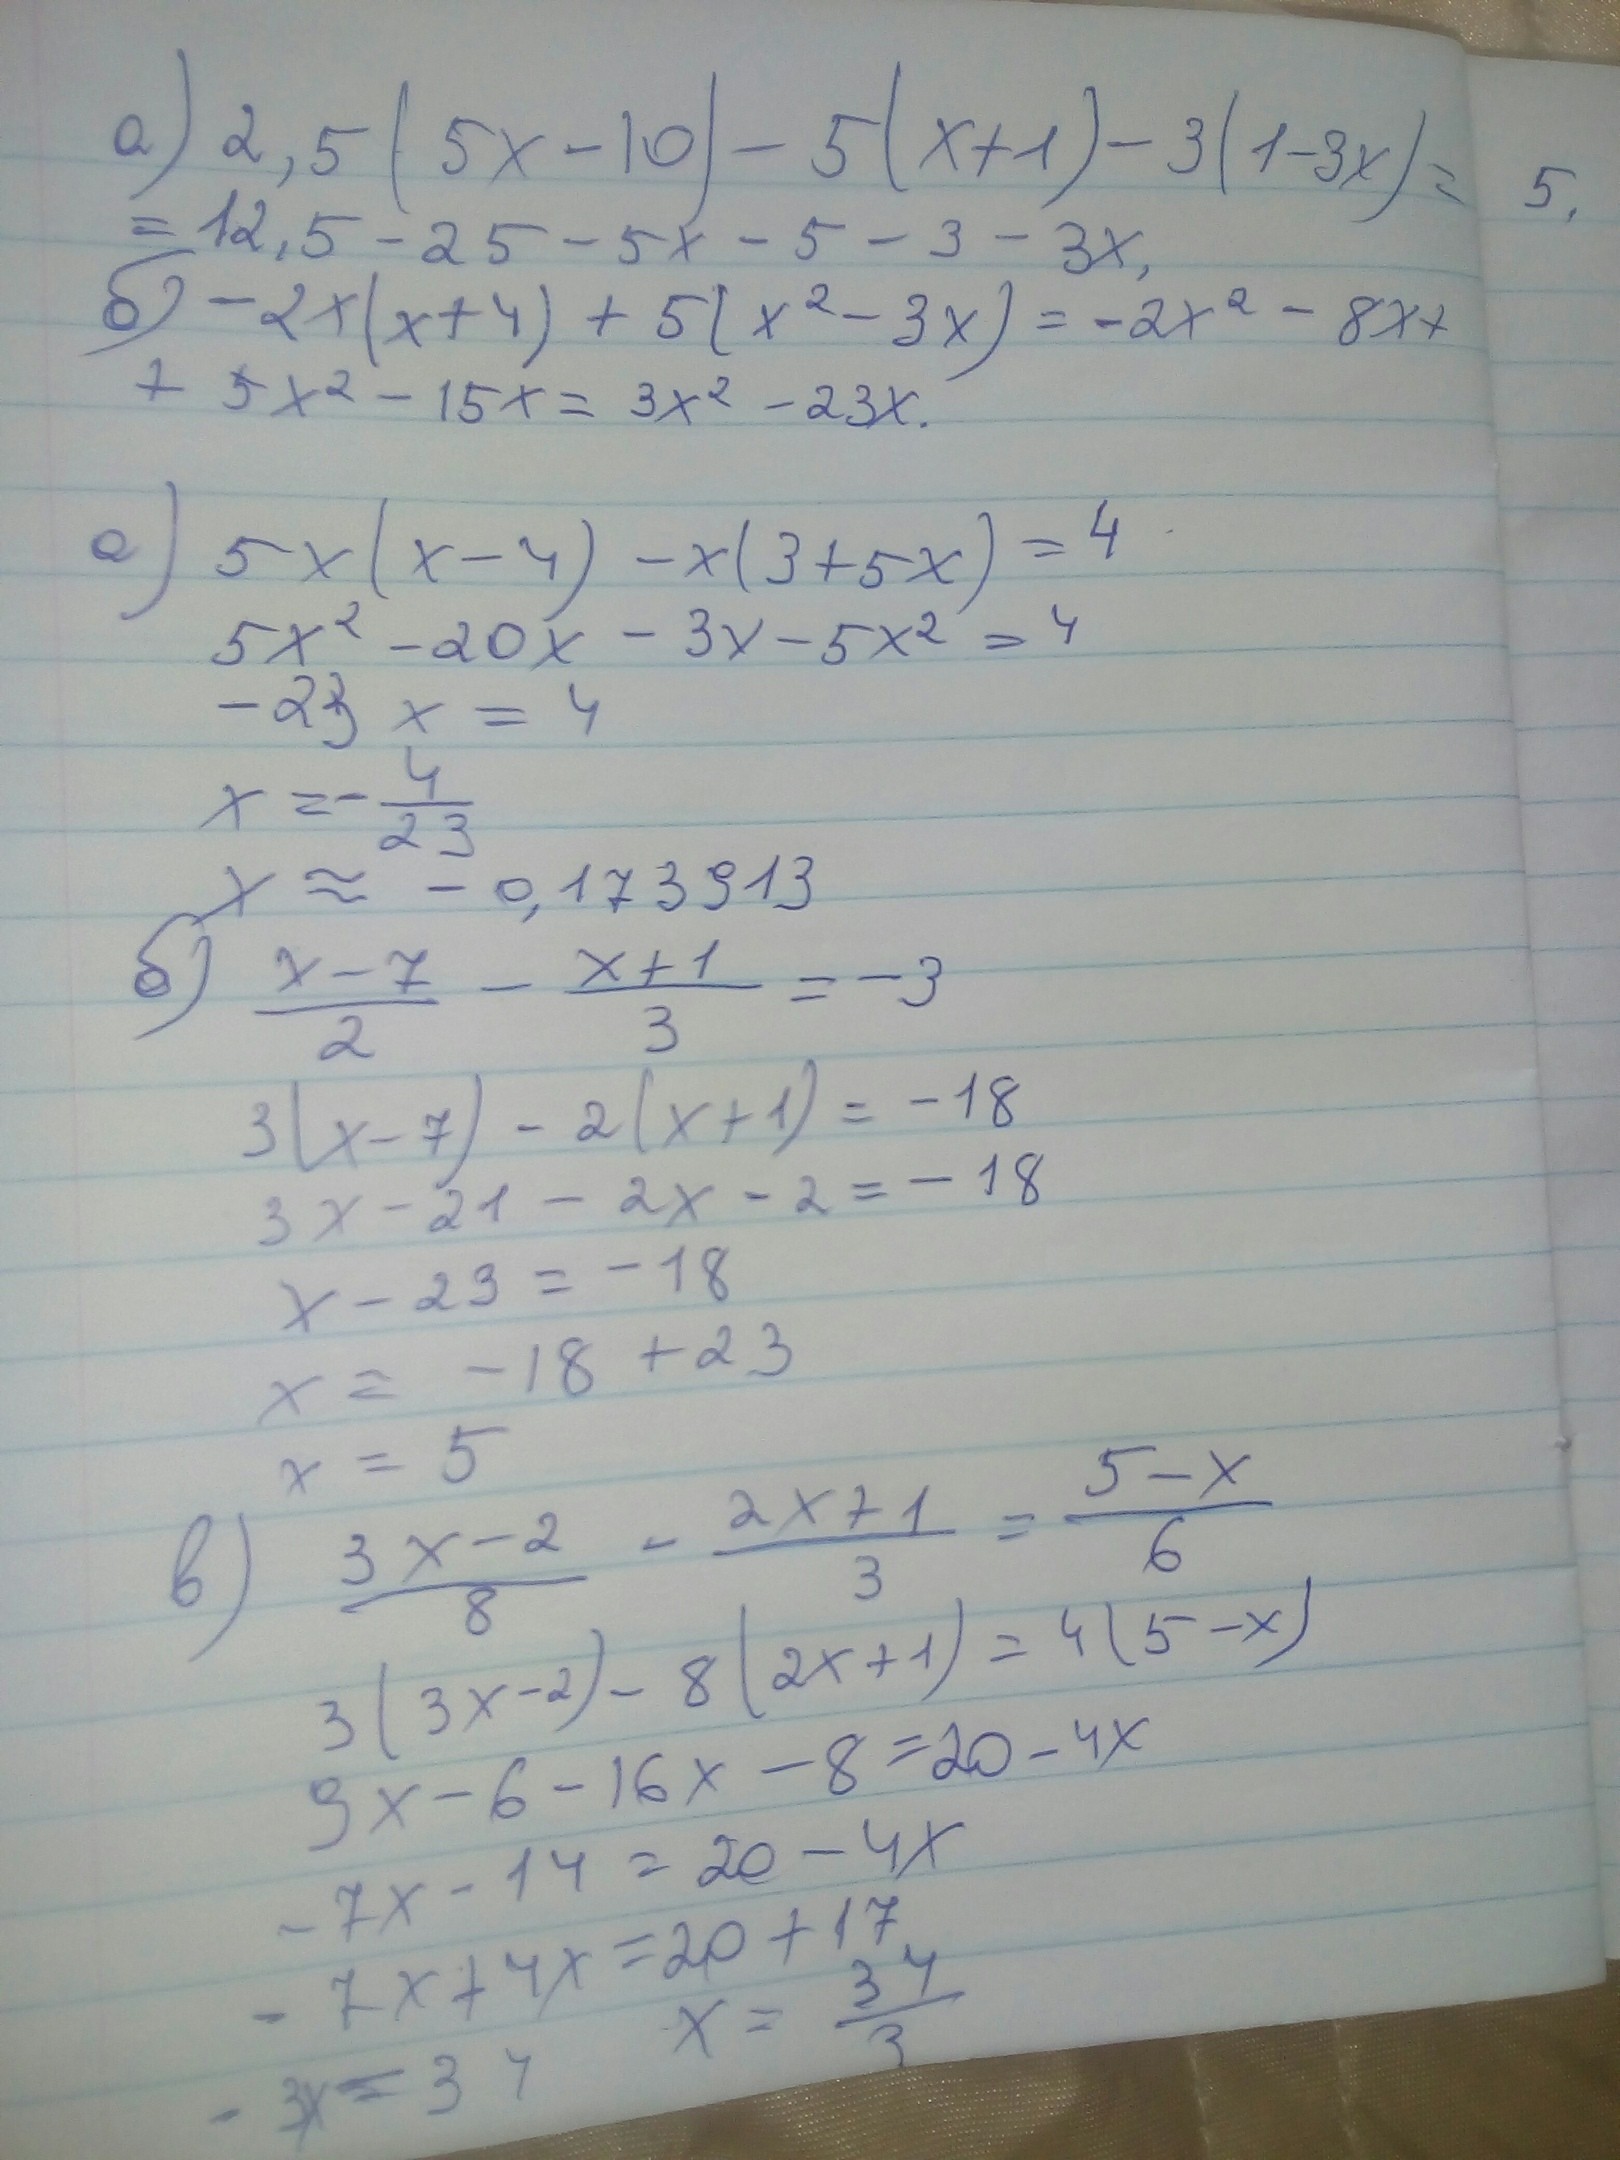 а) 2,5(5x-10)-5(x+1)-3(1-3x)=
= 12,5-25-5x-5-3-3x,
б) -2x(x+4)+5(x²-3x)=-2x²-8x+
+ 5x²-15x=3x²-23x.
а) 5x(x-4)-x(3+5x)=4
5x²-20x-3x-5x²=4
-23x=4
x=-4/23
x≈-0,173913
б) (x-7)/2 - (x+1)/3 = -3
3(x-7)-2(x+1)=-18
3x-21-2x-2=-18
x-23=-18
x=-18+23
x=5
в) (3x-2)/8 - (2x+1)/3 = (5-x)/6
3(3x-2)-8(2x+1)=4(5-x)
9x-6-16x-8=20-4x
-7x-14=20-4x
-7x+4x=20+17
-3x=34
x=34/3
5,